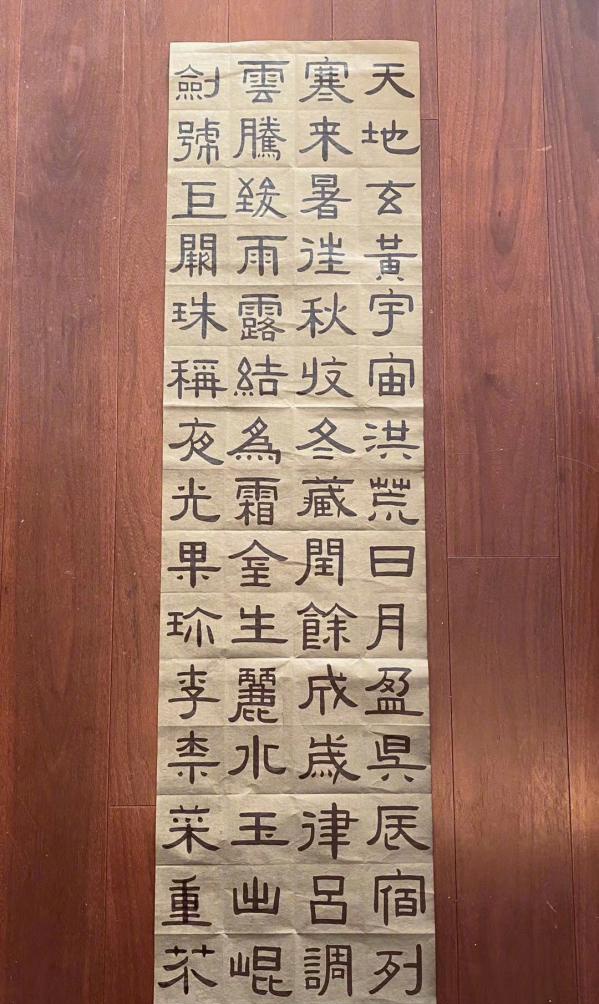 天地玄黃宇宙洪荒日月盈昃辰宿列
寒来暑往秋收冬藏閏餘成歲律呂調
雲騰致雨露結為霜金生麗水玉出崐
劍號巨闕珠稱夜光果珎李柰菜重芥